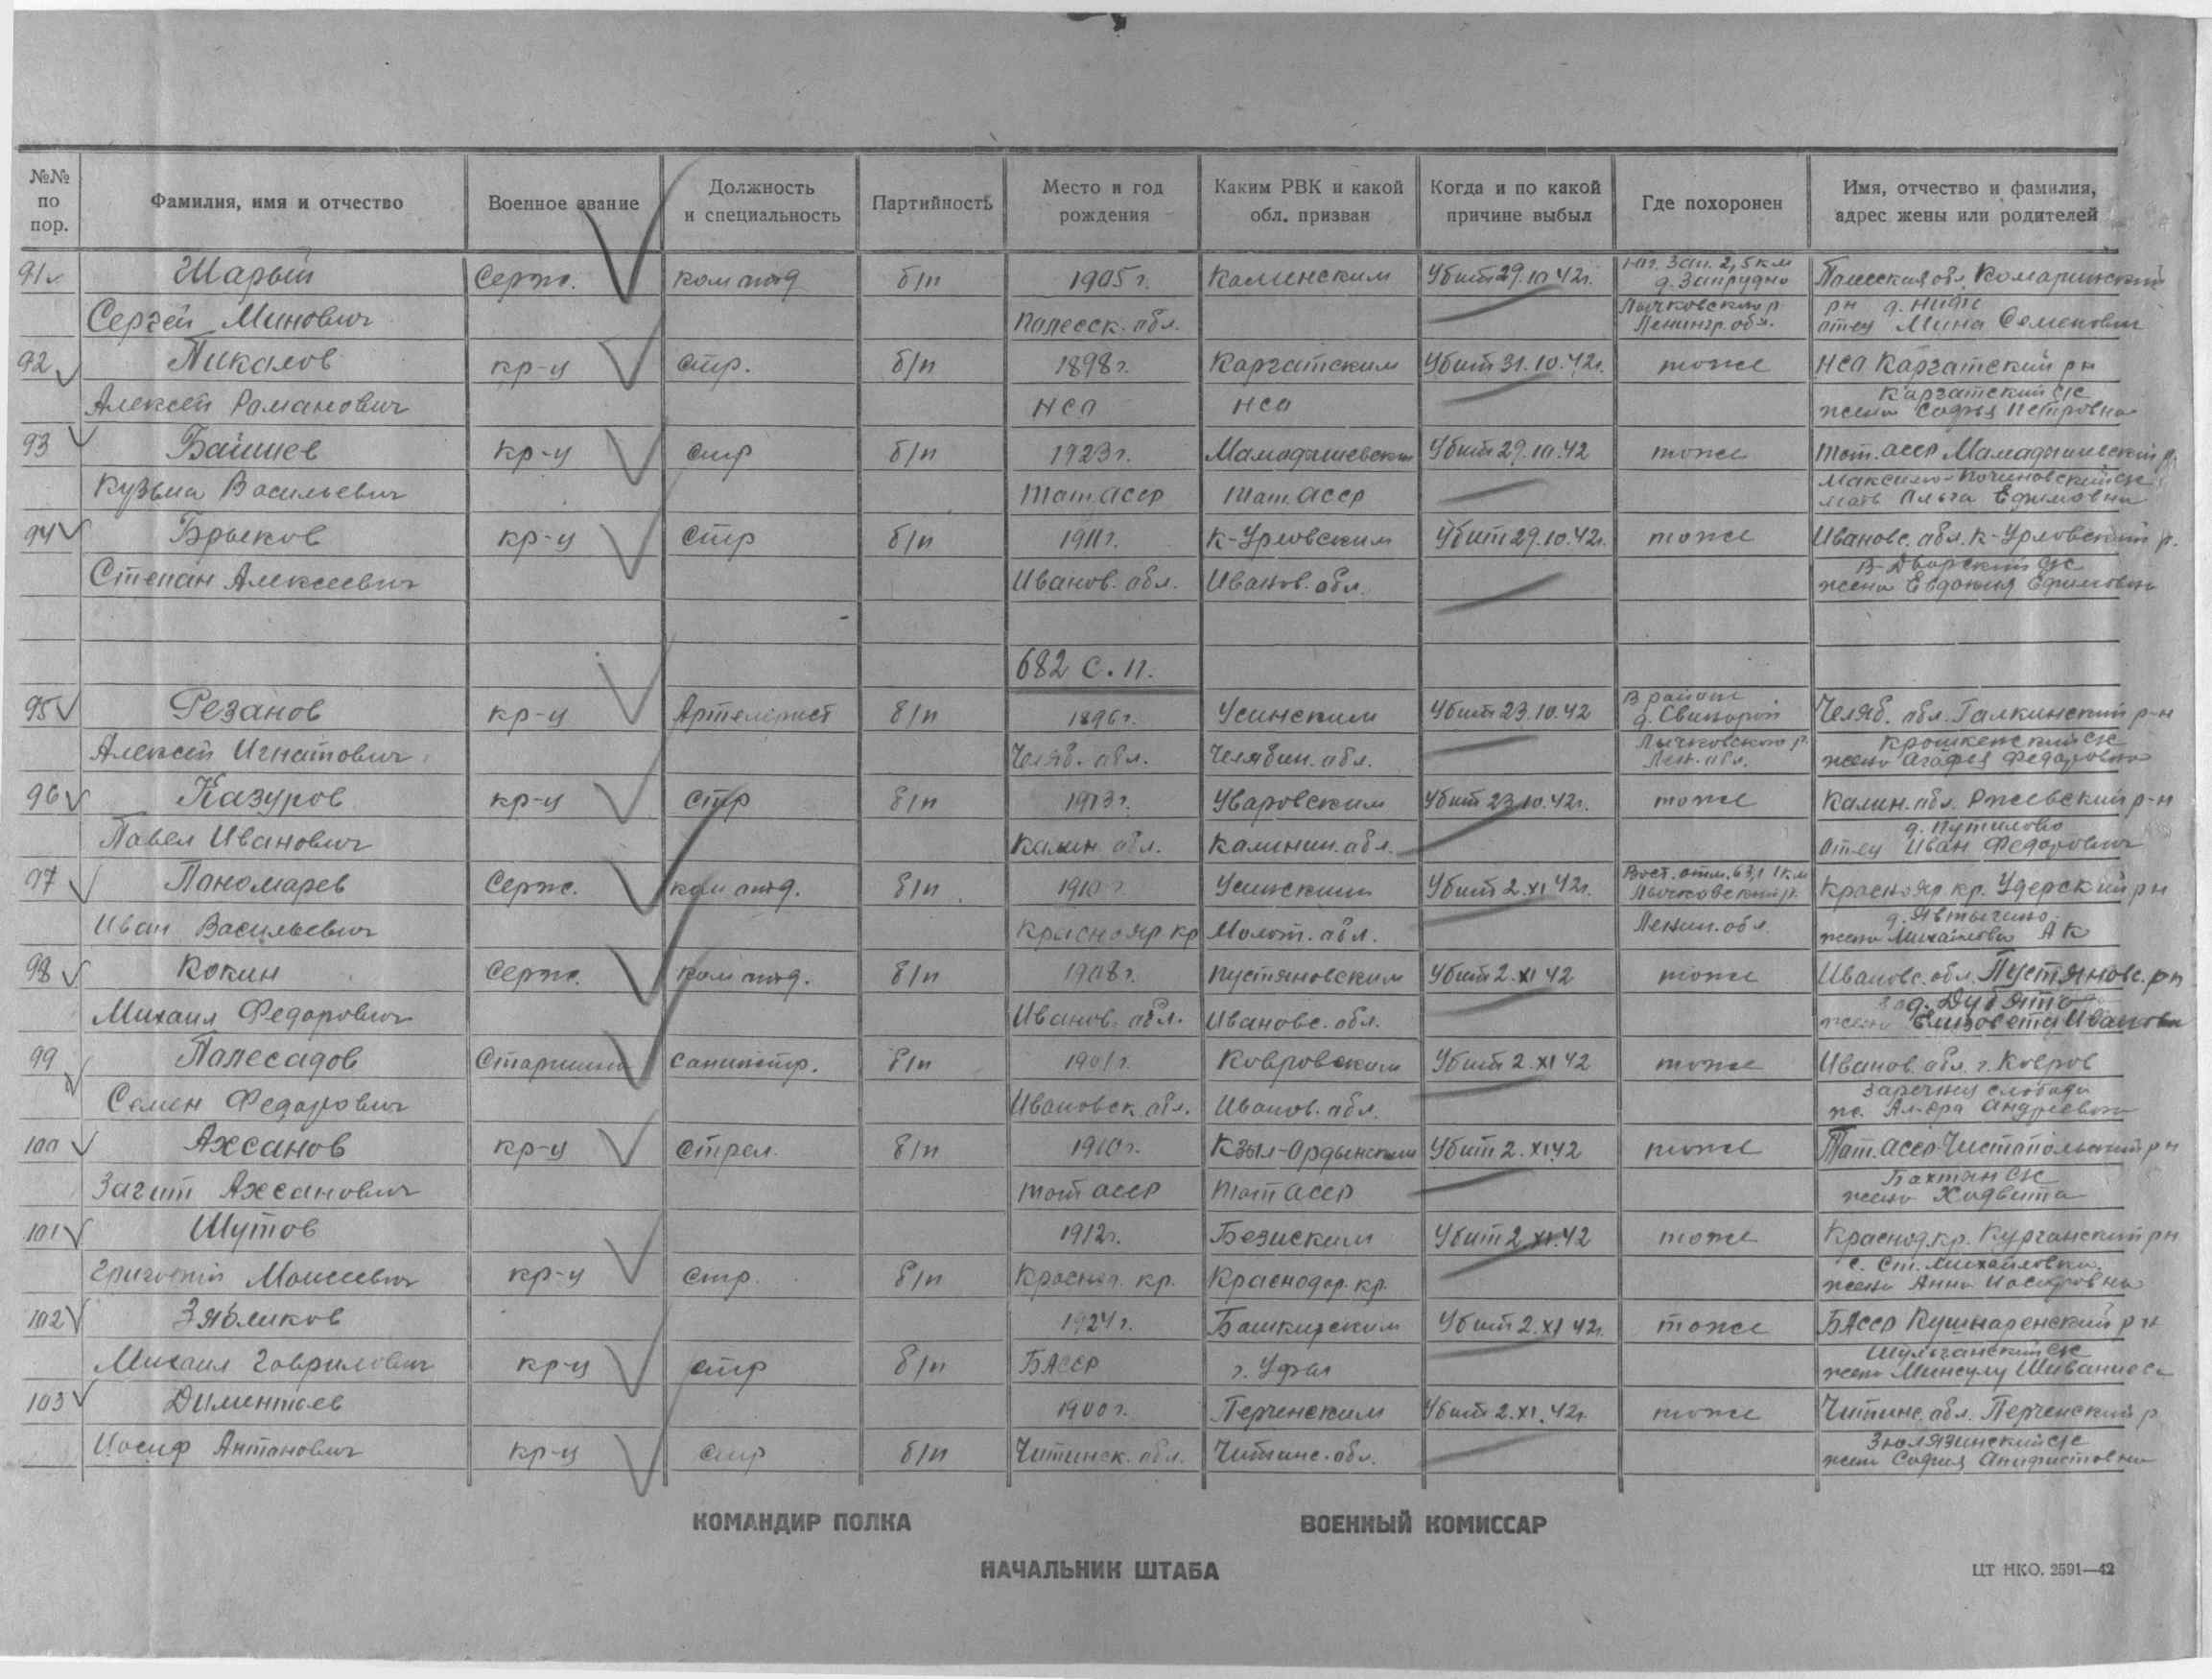 №№ по пор. Фамилия, имя и отчество Военное звание Должность и специальность Партийность Место и год рождения Каким РВК и какой обл. призван Когда и по какой причине выбыл Где похоронен Имя, отчество и фамилия, адрес жены или родителей
91 Шарый Серж. ком отд б/п 1905 г. Комаринским Убит 29.10.42г. 2,5 км д. Запрудно Полесская обл. Комаринский
Сергей Минович Полесск. обл. Лычковского р Ленингр. обл. рн д. отец Мина Семенович
92 Пикалов кр-ц стр. б/п 1898 г. Каргатским Убит 31.10.42г. тоже НСО Каргатский рн
Алексей Романович НСО НСО Каргатский с/с жена Софья Петровна
93 Байшев кр-ц стр б/п 1923 г. Мамадышевским Убит 29.10.42 тоже Тат. АССР Мамадышевский р.
Кузьма Васильевич Тат АССР Тат. АССР Максимо-Починовский с/с мать Ольга Ефимовна
94 Брыков кр-ц стр б/п 1911 г. К-Урловским Убит 29.10.42г. тоже Ивановс. обл. К-Урловский р.
Степан Алексеевич Иванов. обл. Иванов. обл. В-Дворский с/с жена Евдокия Ефимовна
682 С.П.
95 Резанов кр-ц Артелерист б/п 1896 г. Усинским Убит 23.10.42 В районе д. Свинорой Челяб. обл. Галкинский р-н
Алексей Игнатович Челяб. обл. Челябин. обл. Лычковского р. Лен. обл. жена Агафья Федоровна
96 Казуров кр-ц стр б/п 1913 г. Уваровским Убит 23.10.42г. тоже Калин. обл. Ржевский р-н
Павел Иванович Калин обл. Калинин. обл. д. Путилово отец Иван Федорович
97 Пономарев Серж. ком отд. б/п 1910 г. Усинским Убит 2.XI 42г. Вост. отм. 63,1 1 км Лычковский р. Краснояр. кр. Удерский рн
Иван Васильевич Краснояр кр Молот. обл. Ленин. обл. жена Михайлова А К
98 Кокин Серж. ком отд. б/п 1908 г. Пустяновским Убит 2.XI 42 тоже Ивановс. обл. Пустяновс. рн
Михаил Федорович Иванов. обл. Ивановс. обл. жена Елизовета Ивановн
99 Палесадов Старшина санинстр. б/п 1901 г. Ковровским Убит 2.XI 42 тоже Иванов. обл. г. Ковров
Семен Федорович Ивановск. обл. Иванов. обл. Заречная слобода ж. Ал-дра Андреевна
100 Ахсанов кр-ц стрел. б/п 1910 г. Кзыл-Ордынским Убит 2.XI.42 тоже Тат. АССР Чистопольский рн
Загит Ахсанович Тат АССР Тат АССР Бахтян с/с жена Ходвита
101 Шутов 1912 г. Безиским Убит 2.XI.42 тоже Краснод. кр. Курганский рн
Григорий Моисеевич кр-ц стр. б/п Краснод. кр. Краснодар. кр. с. Ст. Михайловка жена Анна Иосифовна
102 Зябликов 1924 г. Башкирским Убит 2.XI 42г. тоже БАССР Кушнаренский рн
Михаил Гаврилович кр-ц стр б/п БАССР г. Уфа Шульганский с/с жена Минсулу
103 Диментьев 1900 г. Перченским Убит 2.XI.42г. тоже Читинс. обл. Перченский р
Иосиф Антонович кр-ц стр б/п Читинск. обл. Читинс. обл. Зюлязинский с/с жена София
КОМАНДИР ПОЛКА ВОЕННЫЙ КОМИССАР
НАЧАЛЬНИК ШТАБА
ЦТ НКО. 2591—42